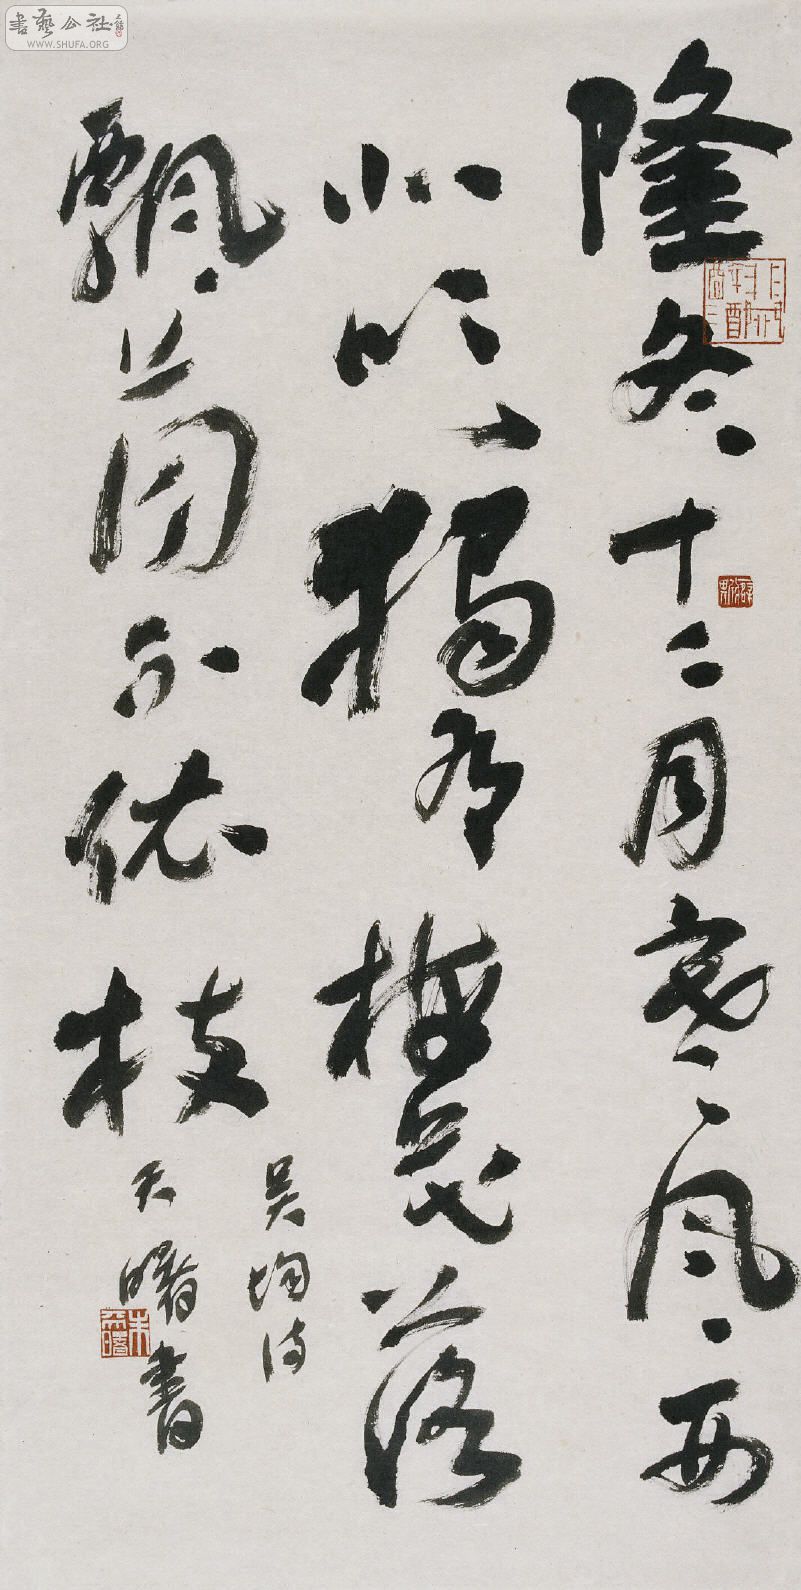 書藝公社
WWW.SHUFA.ORG
隆冬十二月寒風西
北吹獨有梅花落
飄蕩不依枝
吴均诗
天曙書
朱天曙